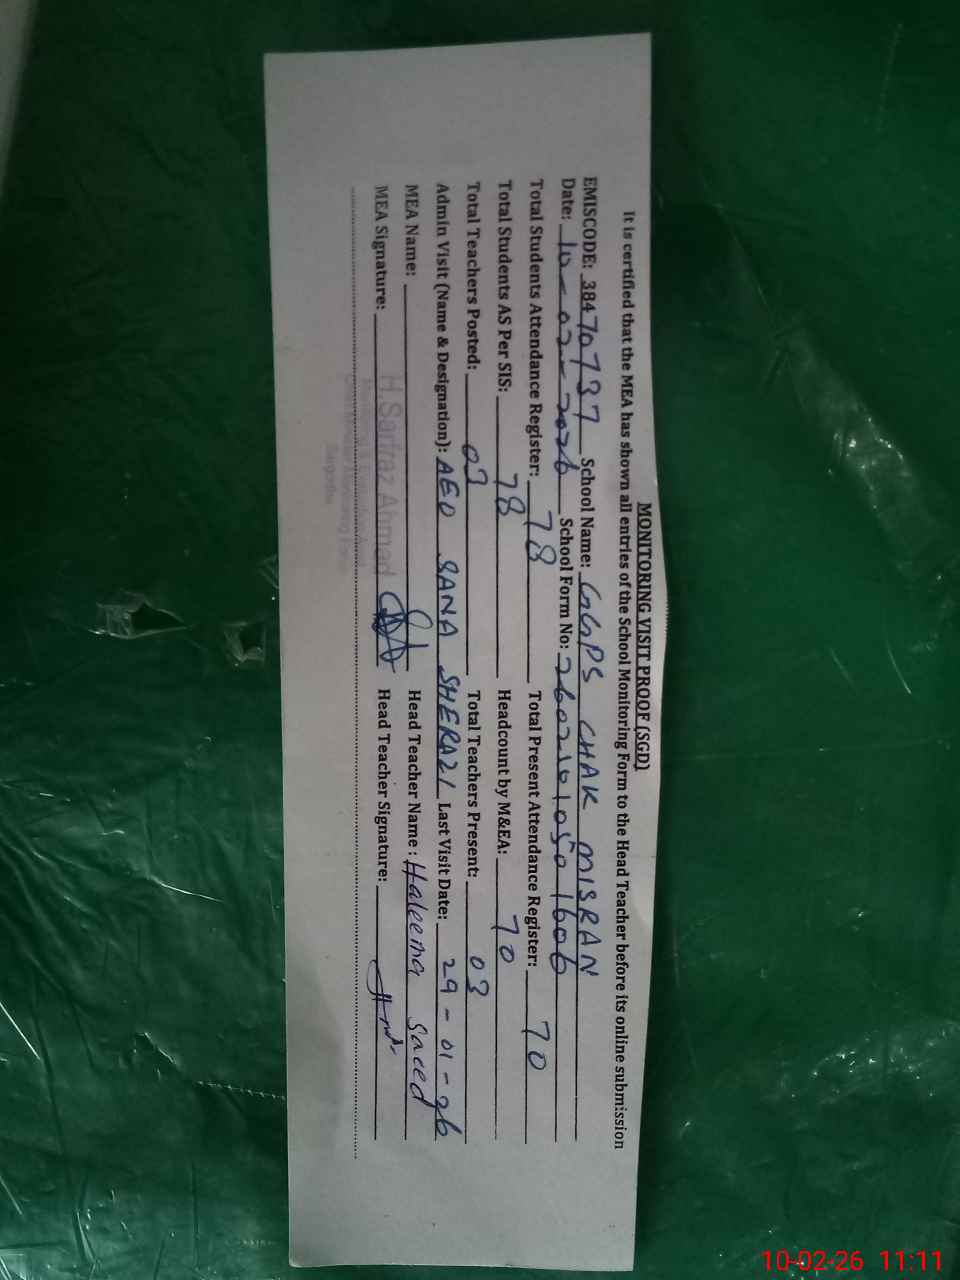 MONITORING VISIT PROOF (SGD)
It is certified that the MEA has shown all entries of the School Monitoring Form to the Head Teacher before its online submission
EMISCODE: 38470737 School Name: GGPS CHAK MISRAN
Date: 10-02-2026 School Form No: 26021010501606
Total Students Attendance Register: 78 Total Present Attendance Register: 70
Total Students AS Per SIS: 78 Headcount by M&EA: 70
Total Teachers Posted: 03 Total Teachers Present: 03
Admin Visit (Name & Designation): AEO SANA SHERAZI Last Visit Date: 29-01-26
MEA Name: Head Teacher Name: Haleema Saeed
MEA Signature: H.Sarfraz Ahmad Head Teacher Signature:
Sargodha
10-02-26 11:11